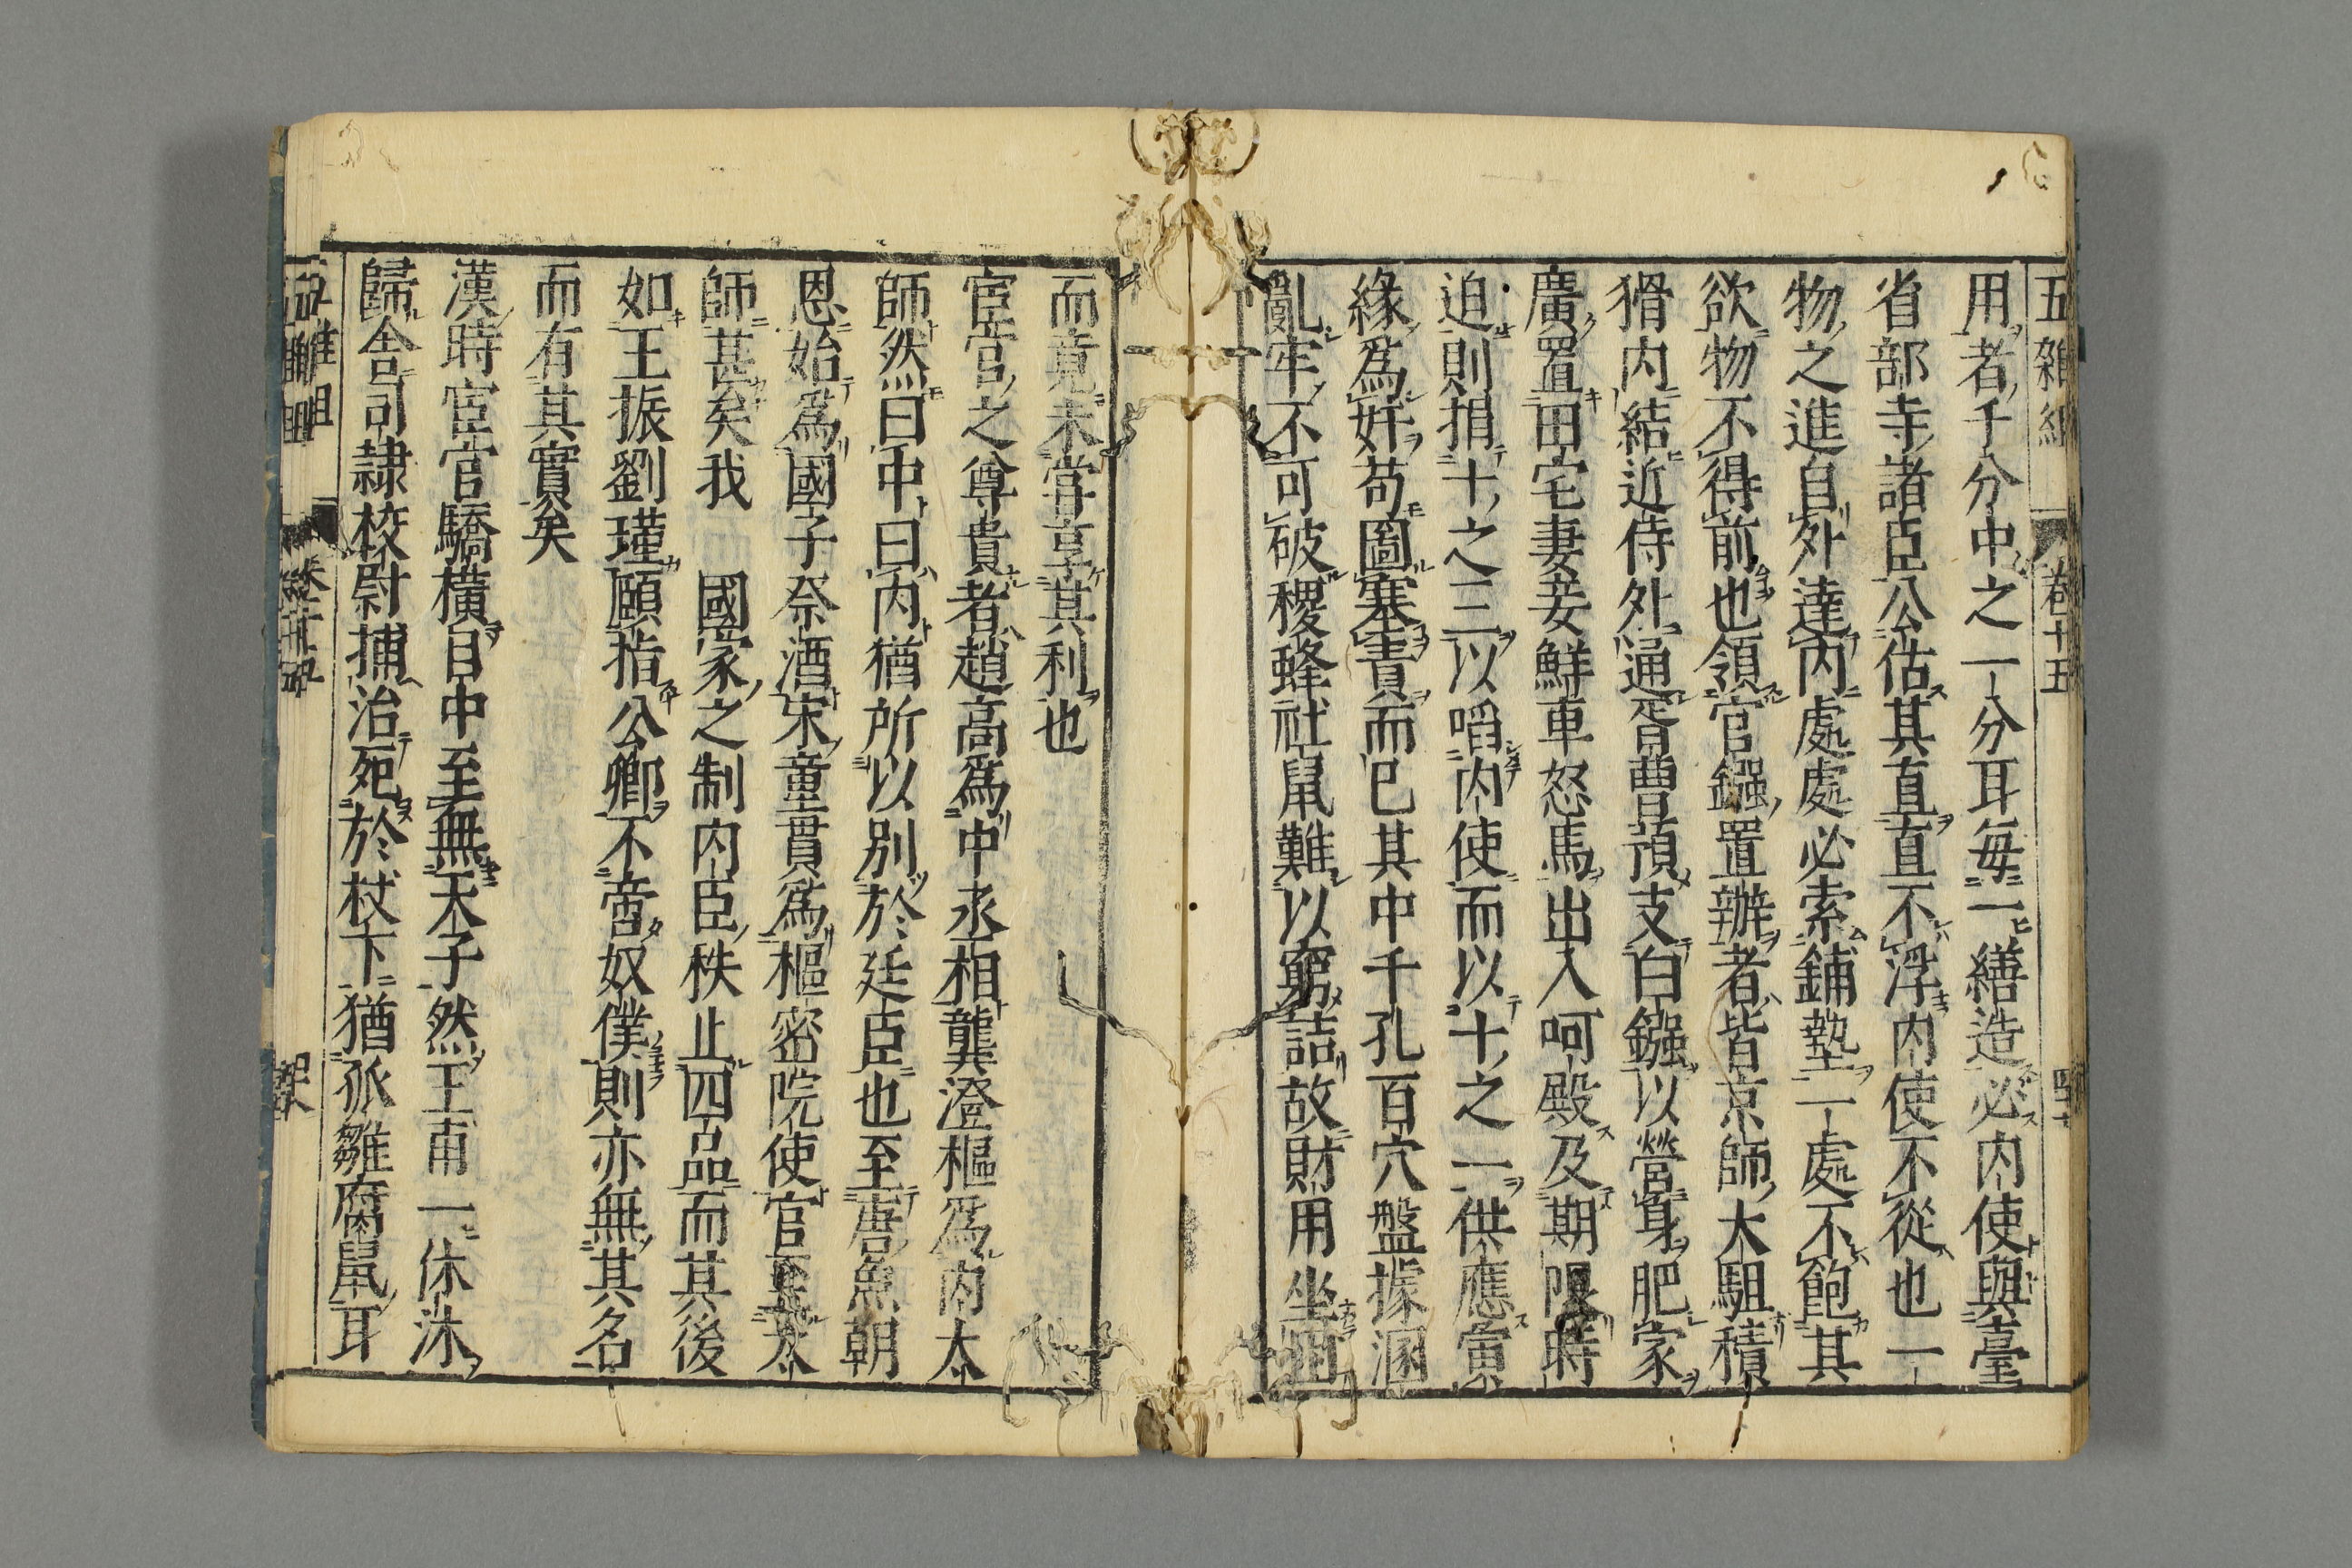 五雜組 卷十五
用者千分中之一分耳每一繕造必內使與臺
省部寺諸臣公估其直直不浮內使不從也一
物之進自外達內處處必索鋪墊一處不飽其
欲物不得前也領官鏹置辦者皆京師大駔積
猾內結近侍外通胥曹預支白鏹以營身肥家
廣置田宅妻妾鮮車怒馬出入呵殿及期限時
迫則捐十之三以啗內使而以十之一供應寅
緣爲奸苟圖塞責而已其中千孔百穴盤據溷
亂牢不可破稷蜂社鼠難以窮詰故財用坐
而竟未嘗享其利也
宦官之尊貴者趙高爲中丞相龔澄樞爲內太
師然曰中曰內猶所以別於廷臣也至唐魚朝
恩始爲國子祭酒宋童貫爲樞密院使官至太
師甚矣我 國家之制內臣秩止四品而其後
如王振劉瑾頤指公卿不啻奴僕則亦無其名
而有其實矣
漢時宦官驕橫目中至無天子然王甫一休沐
歸舍司隷校尉捕治死於杖下猶孤雛腐鼠耳